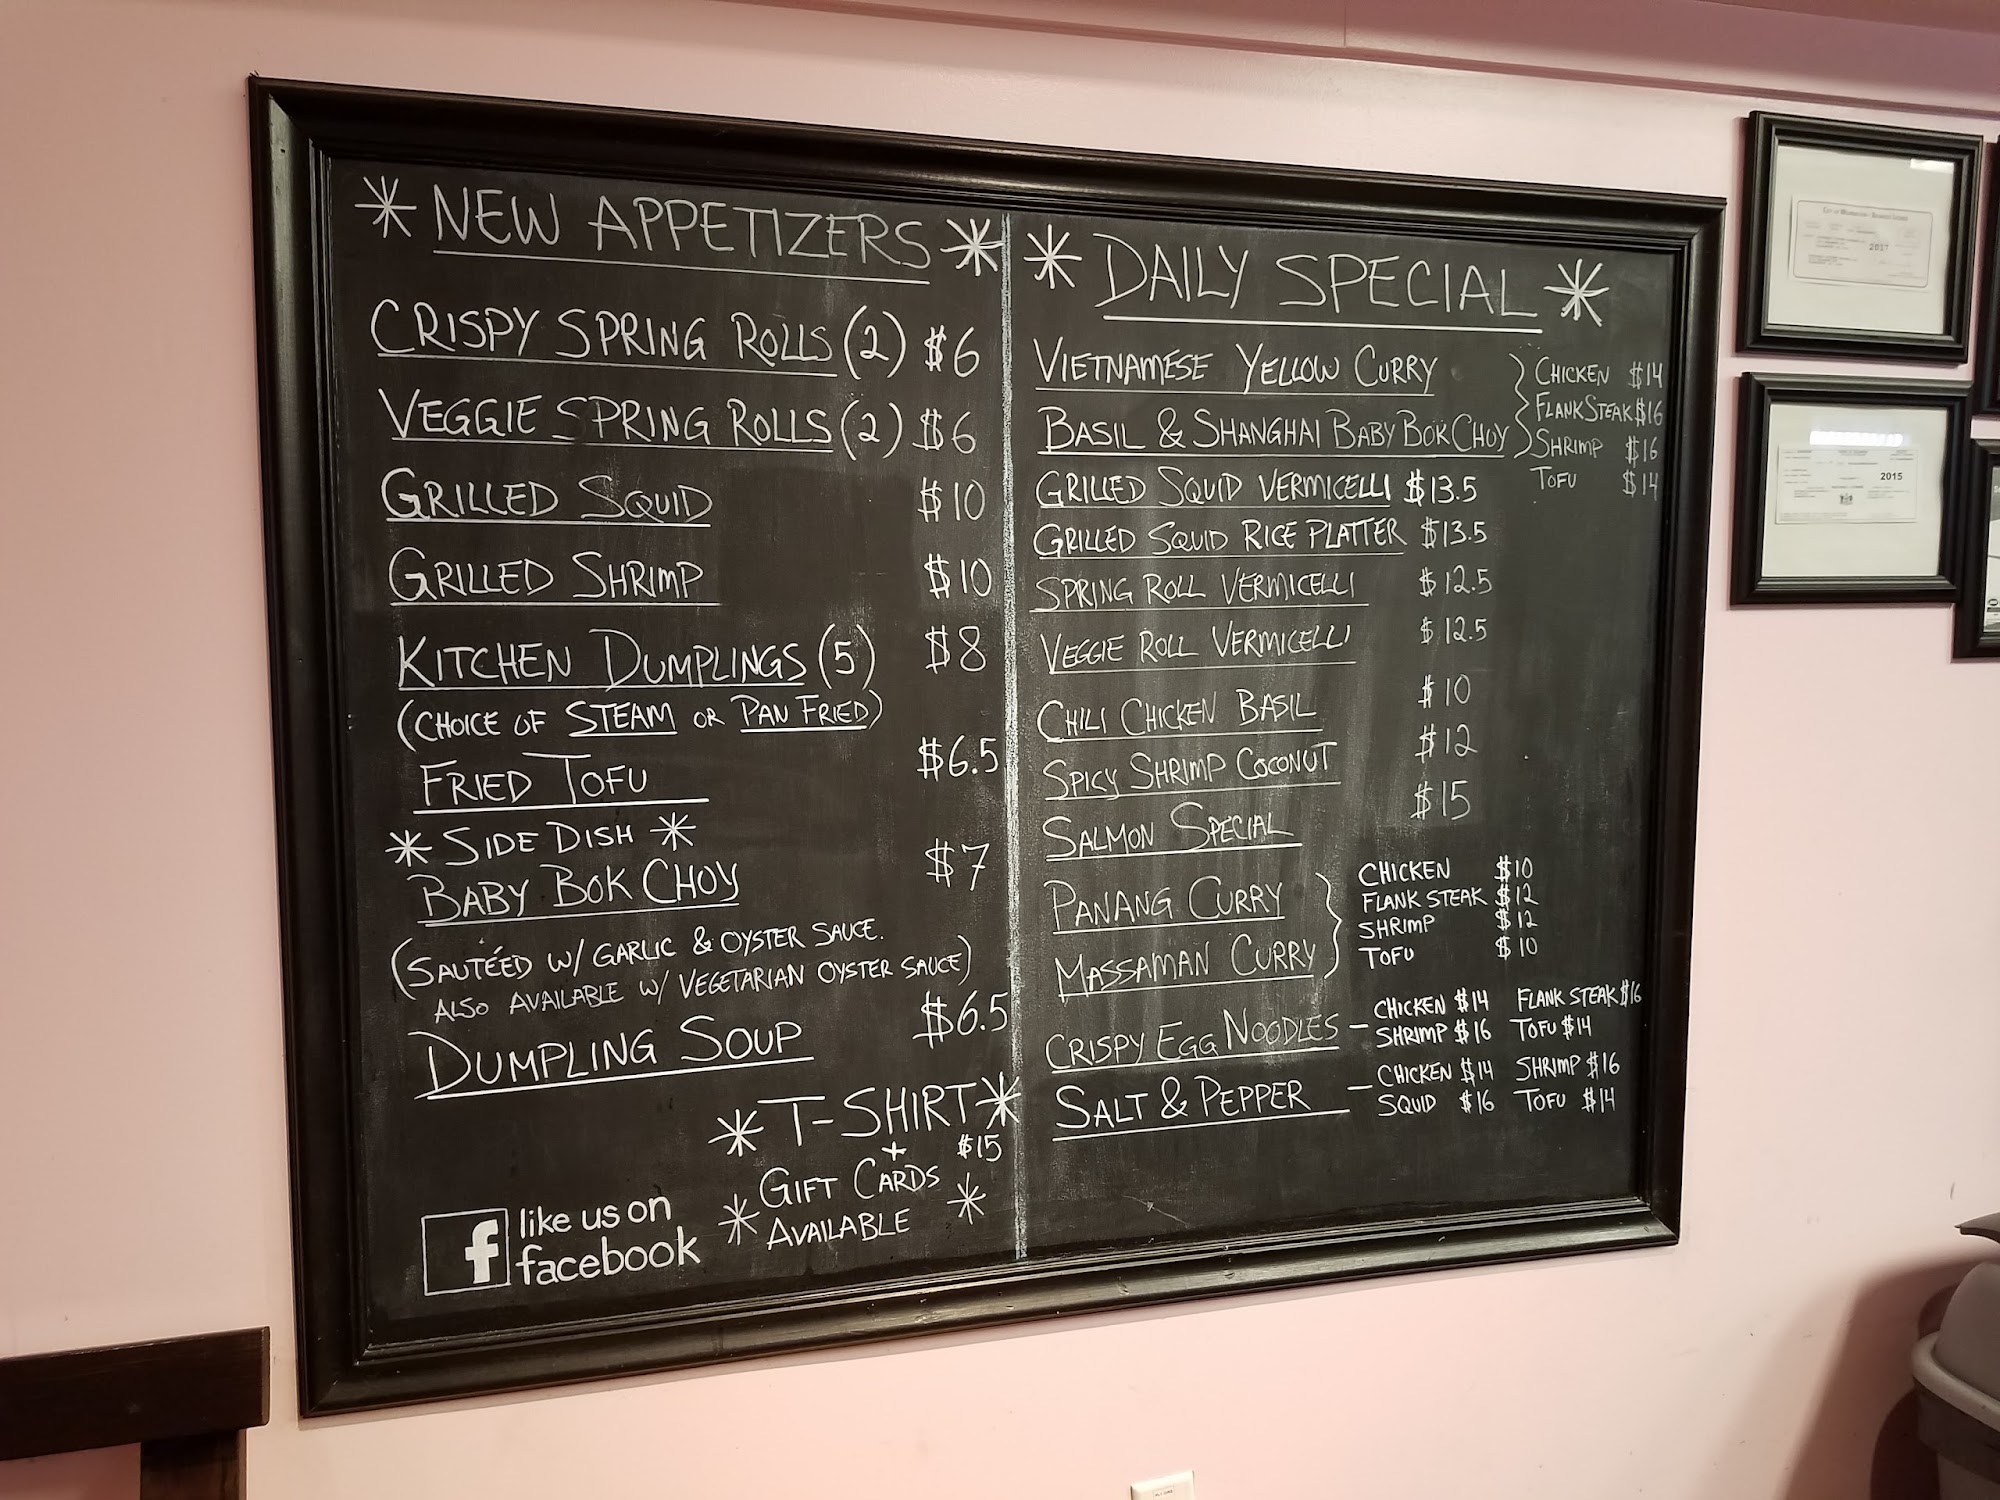 NEW APPETIZERS
CRISPY SPRING ROLLS (2) $6
VEGGIE SPRING ROLLS (2) $6
GRILLED SQUID $10
GRILLED SHRIMP $10
KITCHEN DUMPLINGS (5) $8
(CHOICE OF STEAM OR PAN FRIED)
FRIED TOFU $6.5
SIDE DISH
BABY BOK CHOY $7
(SAUTÉED W/ GARLIC & OYSTER SAUCE.
ALSO AVAILABLE W/ VEGETARIAN OYSTER SAUCE)
DUMPLING SOUP $6.5
T-SHIRT
+ $15
GIFT CARDS
AVAILABLE
f like us on
facebook
DAILY SPECIAL
VIETNAMESE YELLOW CURRY
BASIL & SHANGHAI BABY BOK CHOY
CHICKEN $14
FLANK STEAK $16
SHRIMP $16
TOFU $14
GRILLED SQUID VERMICELLI $13.5
GRILLED SQUID RICE PLATTER $13.5
SPRING ROLL VERMICELLI $12.5
VEGGIE ROLL VERMICELLI $12.5
CHILI CHICKEN BASIL $10
SPICY SHRIMP COCONUT $12
SALMON SPECIAL $15
PANANG CURRY
MASSAMAN CURRY
CHICKEN $10
FLANK STEAK $12
SHRIMP $12
TOFU $10
CRISPY EGG NOODLES – CHICKEN $14 FLANK STEAK $16
SHRIMP $16 TOFU $14
SALT & PEPPER – CHICKEN $14 SHRIMP $16
SQUID $16 TOFU $14
2015